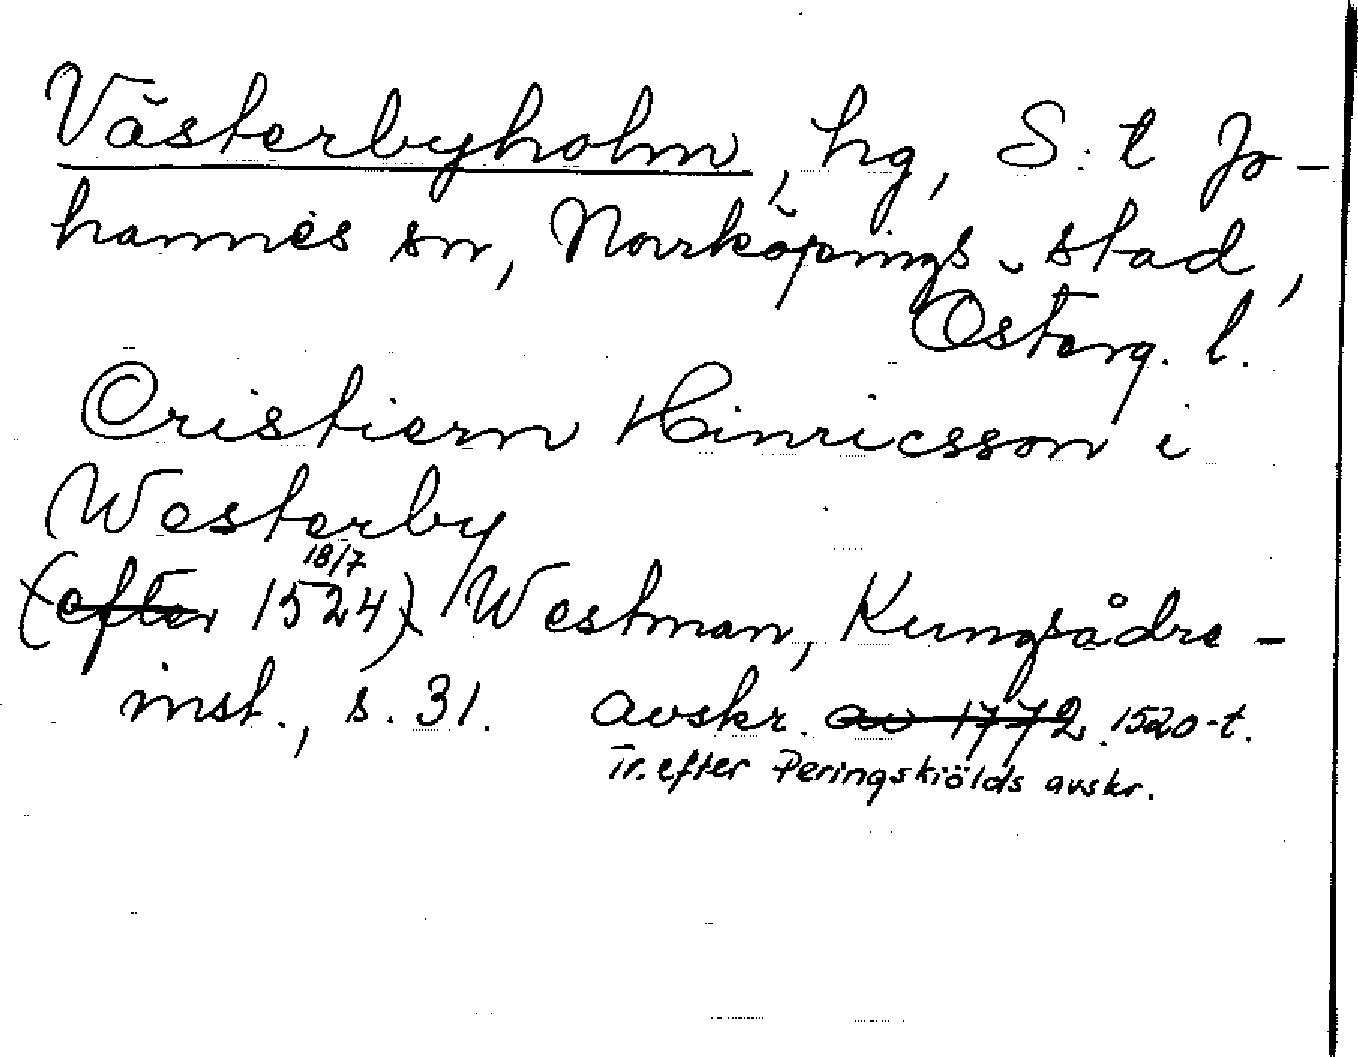 Västerbyholm, hg, S:t Jo-
hannes sn, Norrköpings stad,
Österg. l.
Cristiern Hinricsson i
Westerby
18/7
(efter 1524) Westman, Kungsådre-
inst., s. 31. avskr. av 1772. 1520-t.
Tr. efter Peringskiölds avskr.